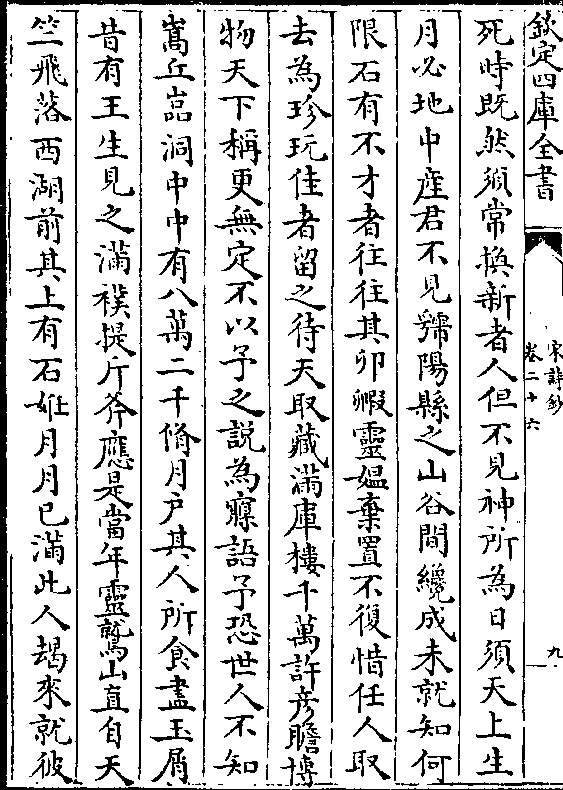 欽定四庫全書
宋詩鈔
卷二十六
九
死時既然須常換新者人但不見神所為日須天上生
月必地中產君不見虢陽縣之山谷間纔成未就知何
限石有不才者往往其卵毈靈媼棄置不復惜任人取
去為珍玩佳者留之待天取藏滿庫樓千萬許彥瞻博
物天下稱更無定不以予之說為寱語予恐世人不知
嵩丘嵓洞中中有八萬二千脩月户其人所食盡玉屑
昔有王生見之滿襆提斤斧應是當年靈鷲山直自天
竺飛落西湖前其上有石姙月月已滿此人朅來就彼